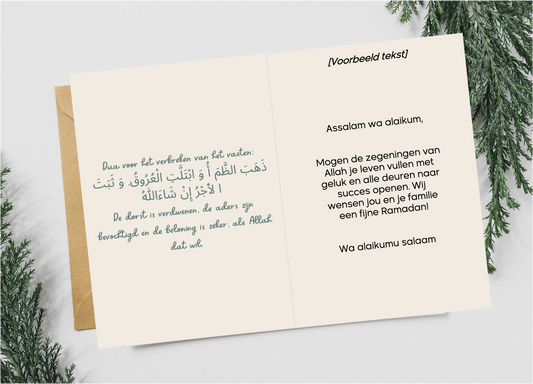 Dua voor het verbreken van het vasten:
ذَهَبَ الظَّمَ أُ وَ ابْتَلَّتِ الْعُرُوقُ، وَ ثَبَتَ
ا لأَجْرُ إِنْ شَاءَاللهُ
De dorst is verdwenen, de aders zijn
bevochtigd en de beloning is zeker, als Allah
dat wil.
[Voorbeeld tekst]
Assalam wa alaikum,
Mogen de zegeningen van
Allah je leven vullen met
geluk en alle deuren naar
succes openen. Wij
wensen jou en je familie
een fijne Ramadan!
Wa alaikumu salaam